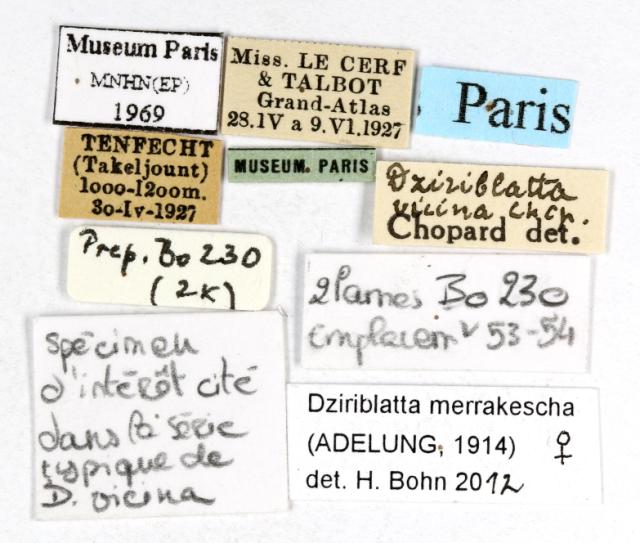 Museum Paris
MNHN(EP)
1969
Miss. LE CERF
& TALBOT
Grand-Atlas
28.IV a 9.VI.1927
Paris
TENFECHT
(Takeljount)
1000-1200m.
30-IV-1927
MUSEUM. PARIS
Dziriblatta
vicina Chop.
Chopard det.
Prep. Bo 230
(2K)
2 lames Bo 230
emplacem 53-54
Spécimen
d'intérêt cité
dans la série
typique de
D. vicina
Dziriblatta merrakescha
(ADELUNG, 1914) ♀
det. H. Bohn 2012